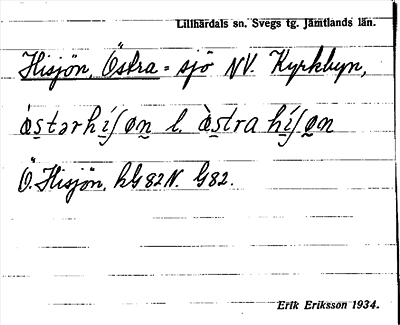 Lillhärdals sn. Svegs tg. Jämtlands län.
Hisjön, Östra = sjö NV. Kyrkbyn,
ö̀stərhíʃøn l. ö̀stra híʃøn
Ö. Hisjön. hG82N. G82.
Erik Eriksson 1934.